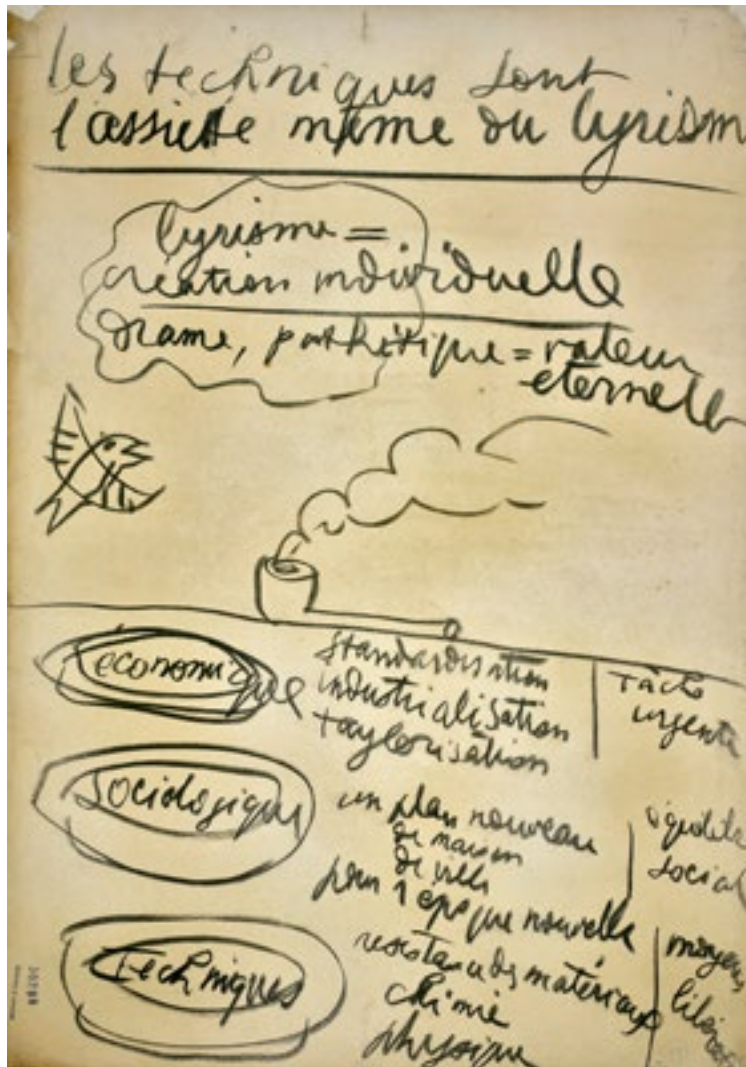 les techniques sont
l'assiette même du lyrism
lyrisme =
création individuelle
drame, pathétique = valeur
eternelle
économique
standardisation
industrialisation
taylorisation
tâche
urgente
Sociologique
un plan nouveau
de maison
de ville
pour 1 époque nouvelle
social
Techniques
resistance des matériaux
chimie
physique
moyens